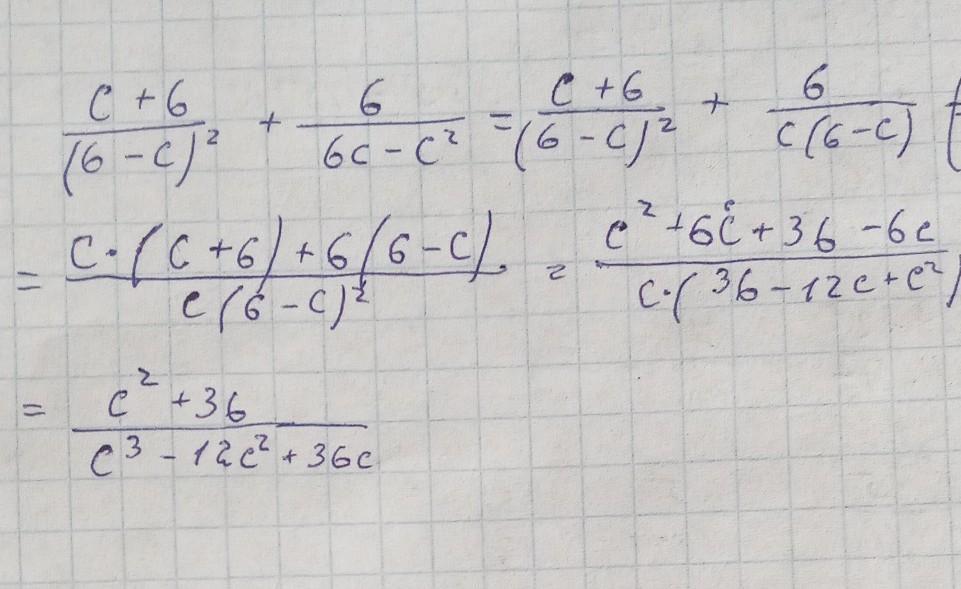 (c+6)/(6-c)² + 6/(6c-c²) = (c+6)/(6-c)² + 6/(c(6-c))
= (c·(c+6)+6(6-c))/(c(6-c)²) = (c²+6c+36-6c)/(c·(36-12c+c²))
= (c²+36)/(c³-12c²+36c)